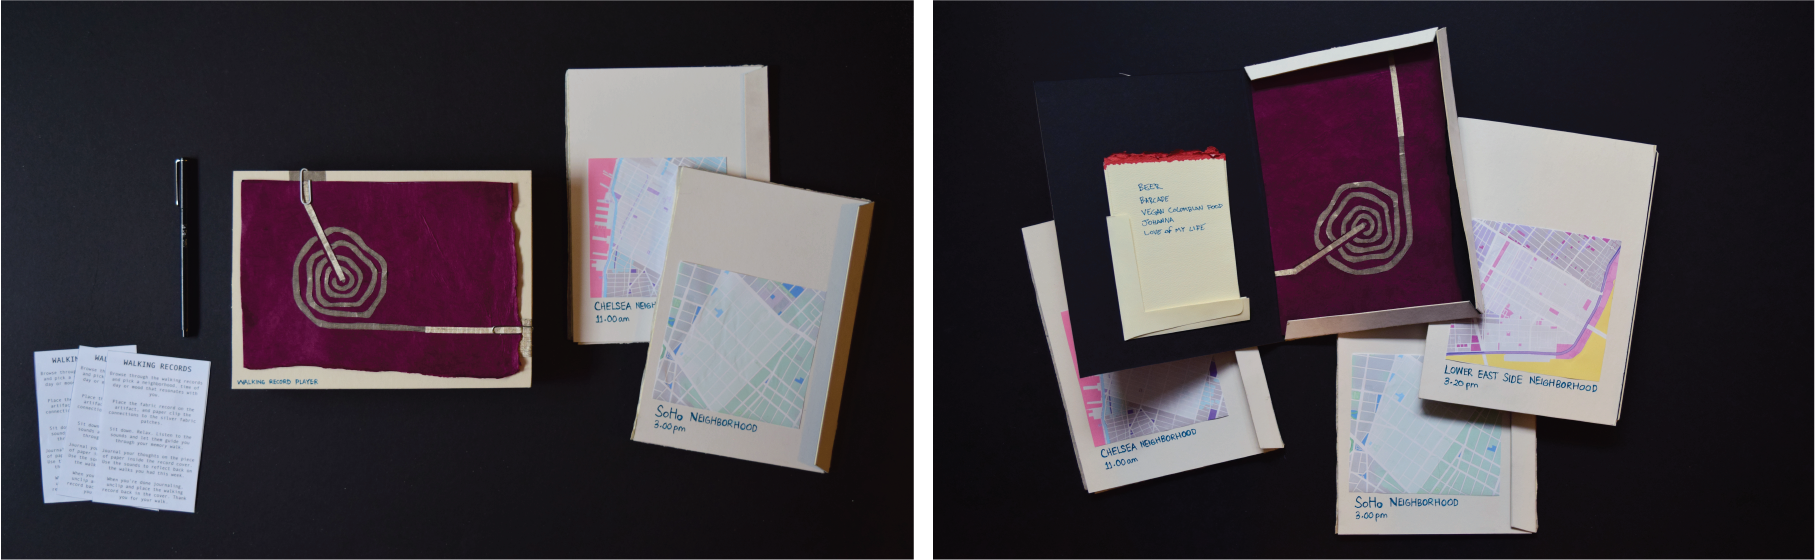 WALKING RECORDS
Browse through the walking records
and pick a neighborhood, time of
day or mood that resonates with
you.
Place the fabric record on the
artifact, and paper clip the
connections to the silver fabric
patches.
Sit down. Relax. Listen to the
sounds and let them guide you
through your memory walk.
Journal your thoughts on the piece
of paper inside the record cover.
Use the sounds to reflect back on
the walks you had this week.
When you're done journaling,
unclip and place the walking
record back in the cover. Thank
you for your walk.
WALKING RECORD PLAYER
CHELSEA NEIGH
11.00 am
SoHo NEIGHBORHOOD
3.00 pm
BEER
BARCADE
VEGAN COLOMBIAN FOOD
JOHANNA
LOVE of MY LIFE
CHELSEA NEIGHBORHOOD
11.00 am
LOWER EAST SIDE NEIGHBORHOOD
3.20 pm
SoHo NEIGHBORHOOD
3.00 pm